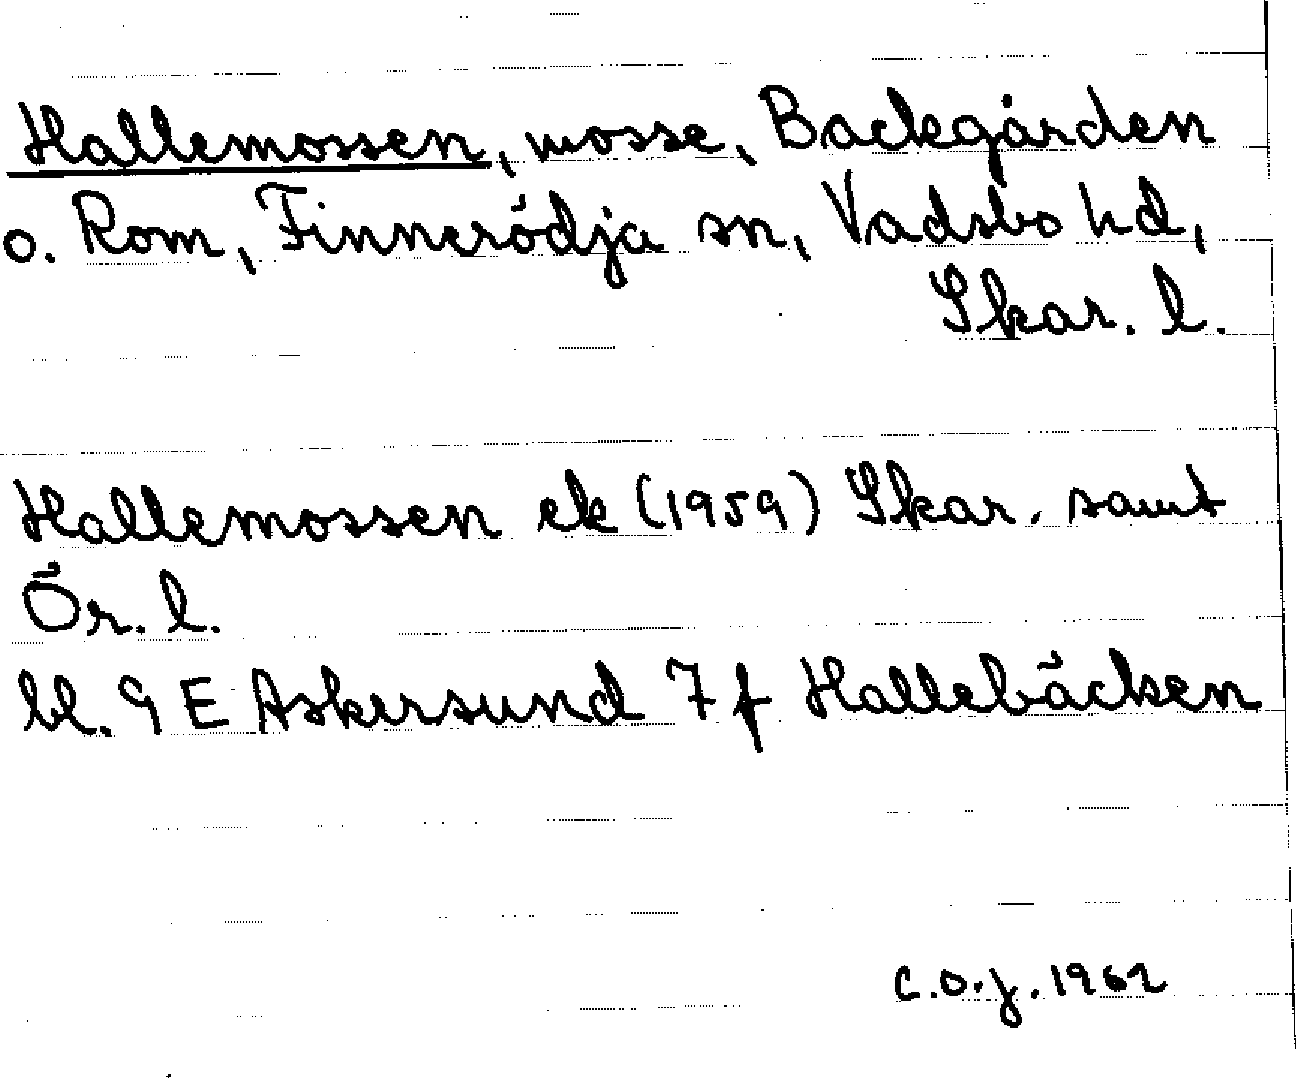 Hallemossen, mosse, Backgården
o. Rom, Finnerödja sn, Vadsbo hd,
Skar. l.
Hallemossen ek (1959) Skar. samt
Ör. l.
bl. 9 E Askersund 7 f Hallebäcken
C.O.J. 1962